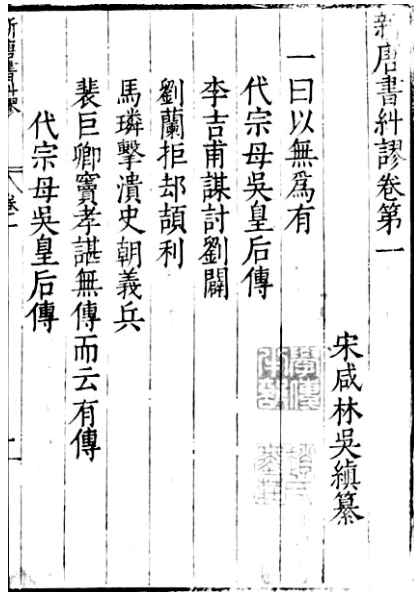 新唐書糾謬卷第一
宋咸林吳縝纂
一曰以無爲有
代宗母吳皇后傳
李吉甫謀討劉闢
劉蘭拒却頡利
馬璘擊潰史朝義兵
裴巨卿竇孝諶無傳而云有傳
代宗母吳皇后傳
新唐書糾謬
卷一
一